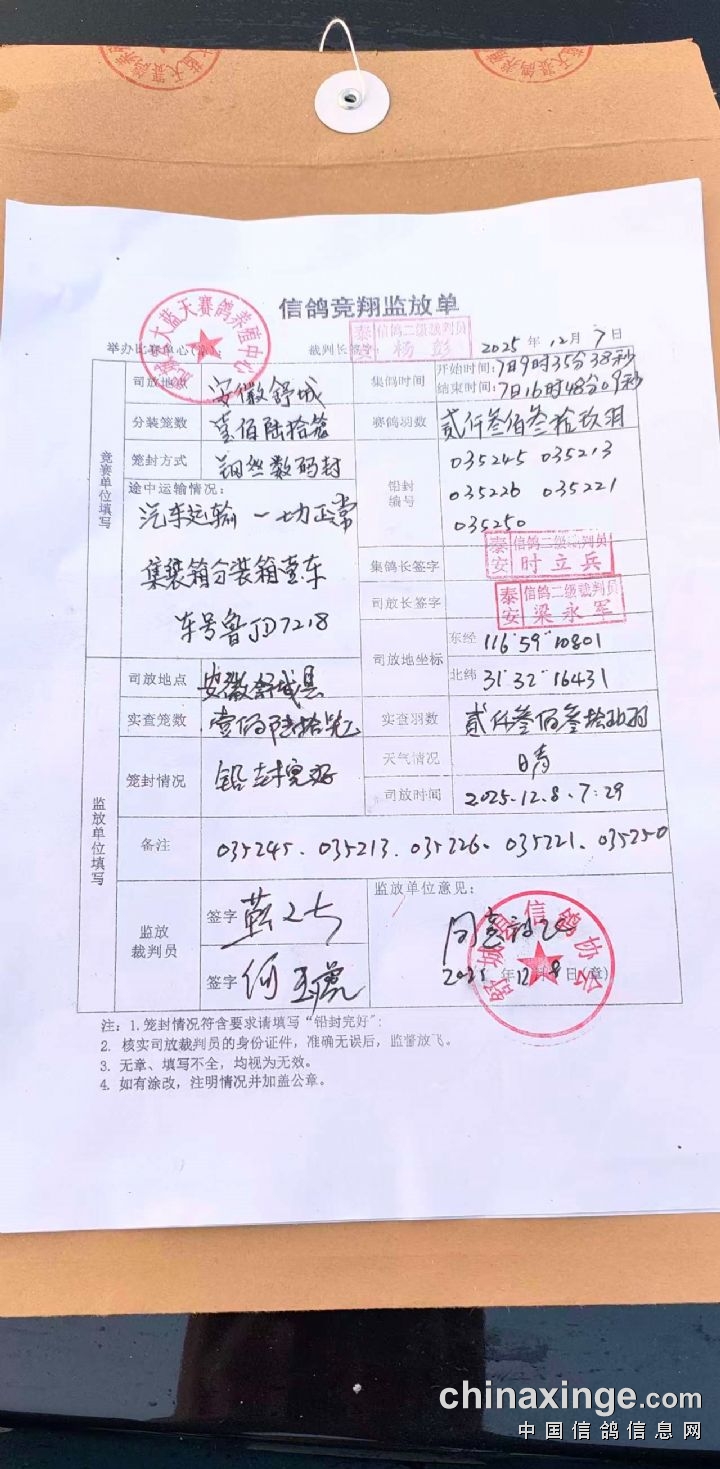 信鸽竞翔监放单
举办比赛单位(章):
大蓝天赛鸽养殖中心
裁判长签字:
泰 信鸽二级裁判员 杨彭
2025年12月7日
竞赛单位填写
司放地点 安徽舒城
集鸽时间 开始时间:7日9时35分38秒
结束时间:7日16时48分09秒
分装笼数 壹佰陆拾笼
赛鸽羽数 贰仟叁佰叁拾玖羽
笼封方式 钢丝数码封
铅封编号 035245 035213
035226 035221
035250
途中运输情况:
汽车运输 一切正常
集装箱分装箱壹车
车号鲁JD7218
集鸽长签字 泰安 信鸽二级裁判员 时立兵
司放长签字 泰安 信鸽二级裁判员 梁永军
司放地坐标 东经 116°59"10801
北纬 31°32"16431
监放单位填写
司放地点 安徽舒城县
实查笼数 壹佰陆拾笼
实查羽数 贰仟叁佰叁拾玖羽
笼封情况 铅封完好
天气情况 晴
司放时间 2025.12.8.7:29
备注 035245. 035213. 035226. 035221. 035250
监放裁判员
签字
签字 何玉虎
监放单位意见:
同意
舒城县信鸽协会
2025年12月8日(章)
注:1.笼封情况符合要求请填写“铅封完好”;
2. 核实司放裁判员的身份证件,准确无误后,监督放飞。
3. 无章、填写不全,均视为无效。
4. 如有涂改,注明情况并加盖公章。
chinaxinge.com
中国信鸽信息网